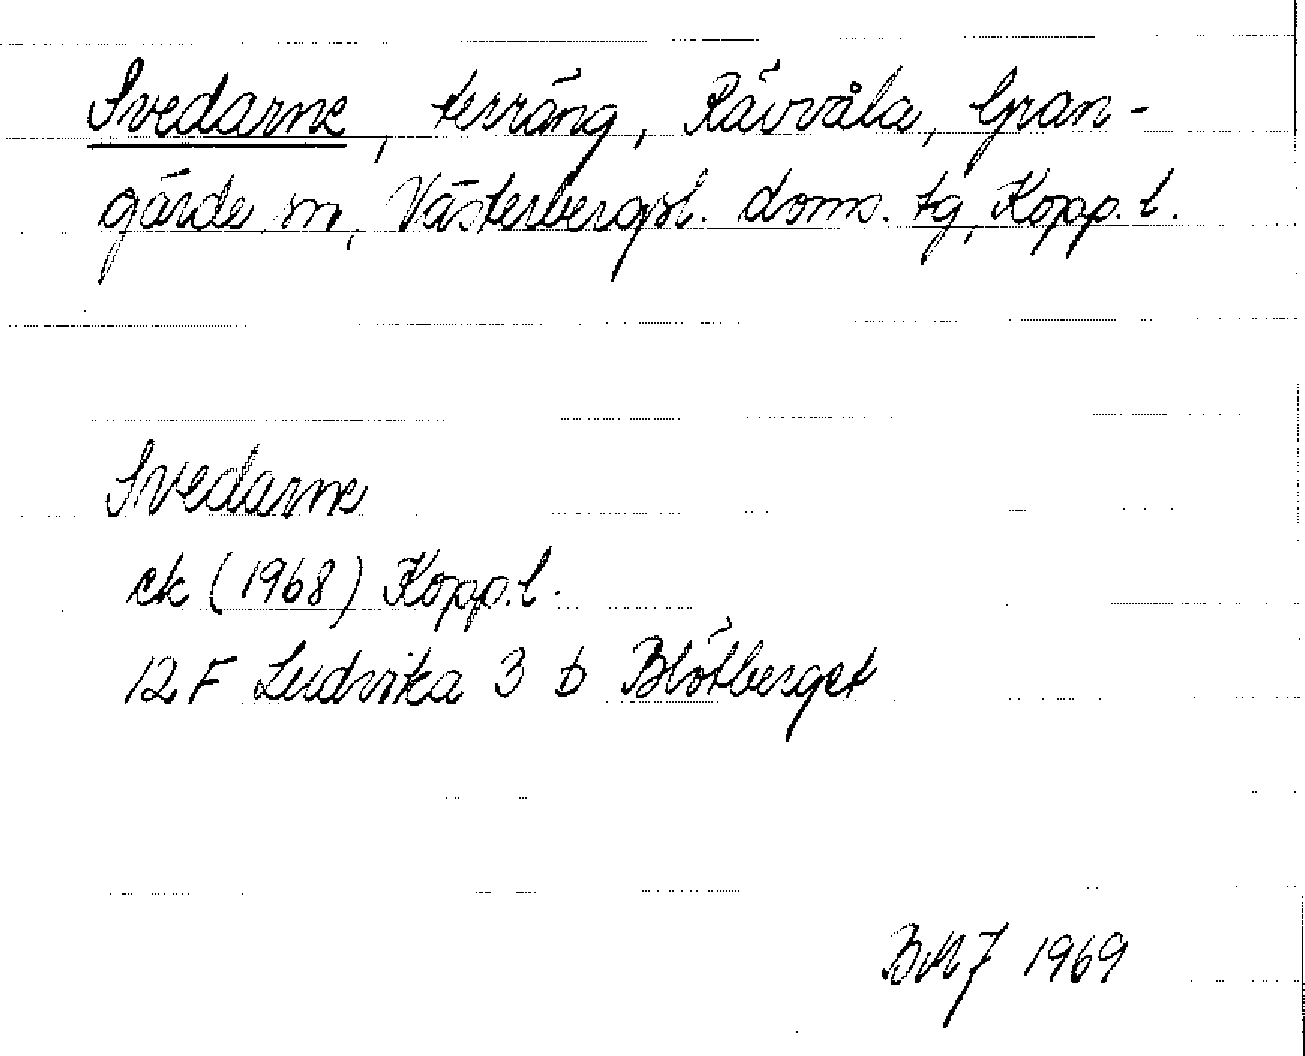 Svedarne, terräng, Rävvåla, Gran-
gärde sn, Västerbergsl. doms. tg, Kopp. l.
Svedarne
ek (1968) Kopp. l.
12 F Ludvika 3 b Blötberget
BMJ 1969